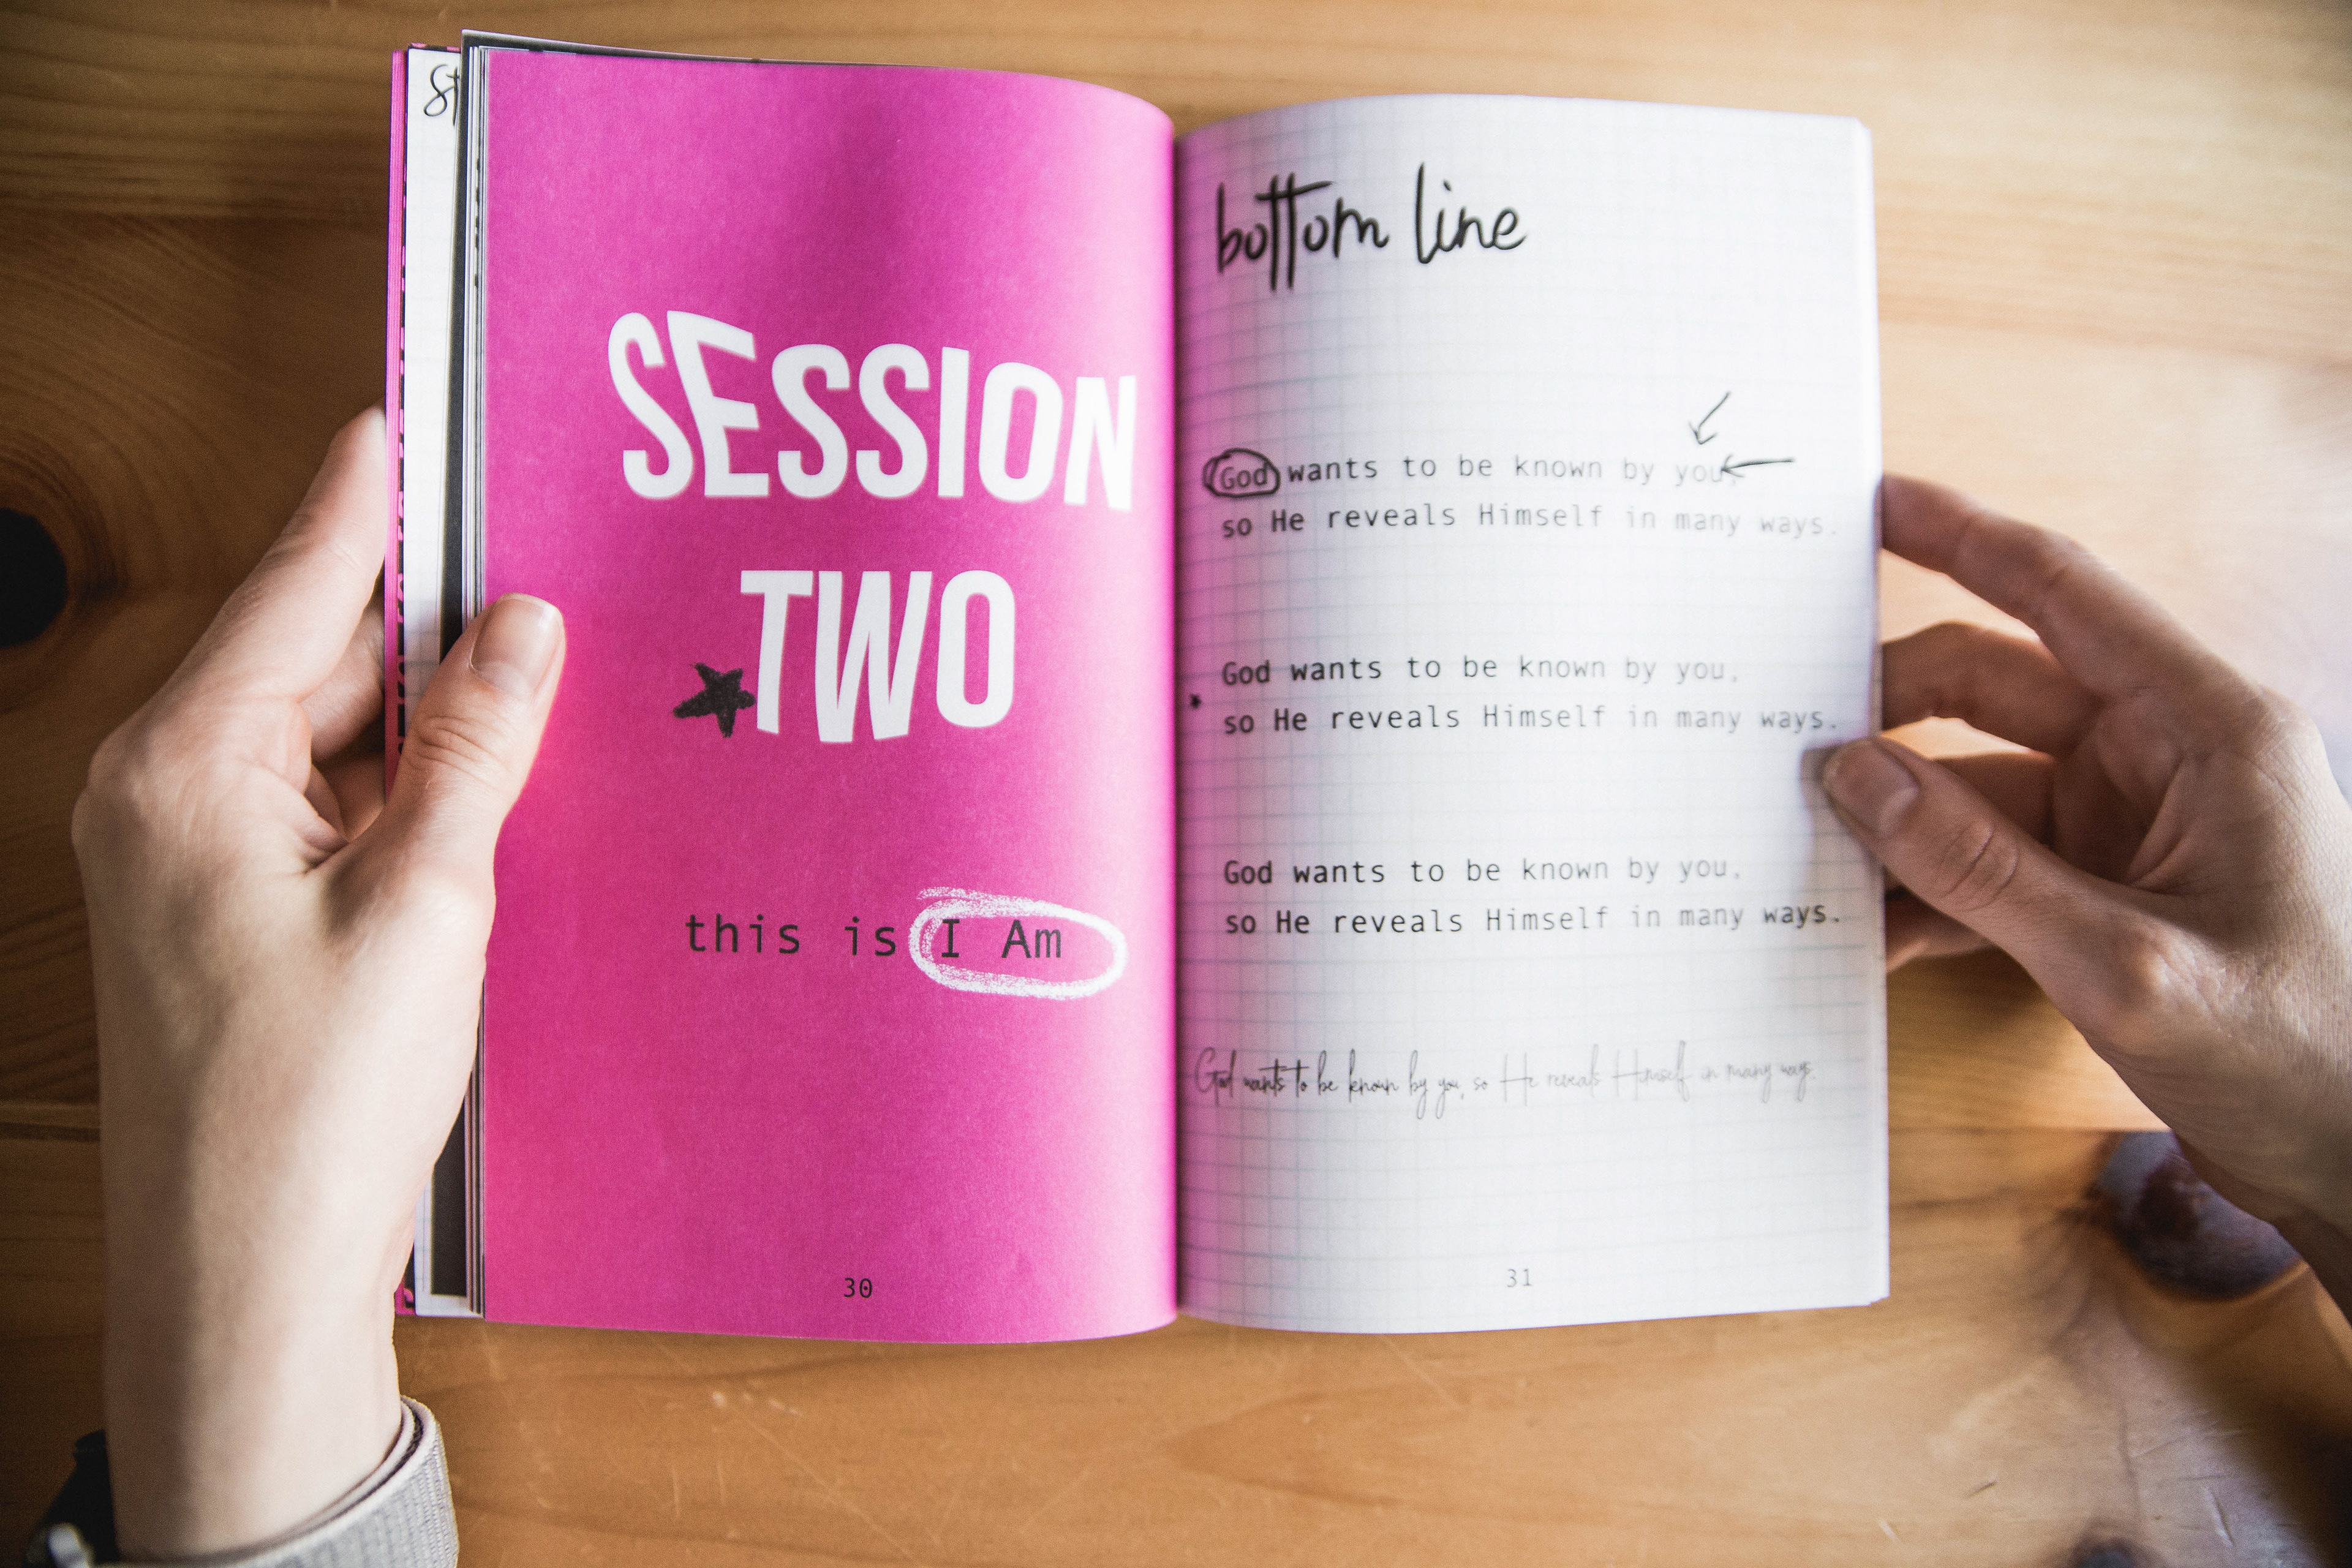 St
SESSION
TWO
this is I Am
30
bottom line
God wants to be known by you,
so He reveals Himself in many ways.
God wants to be known by you,
so He reveals Himself in many ways.
God wants to be known by you,
so He reveals Himself in many ways.
God wants to be known by you, so He reveals Himself in many ways.
31